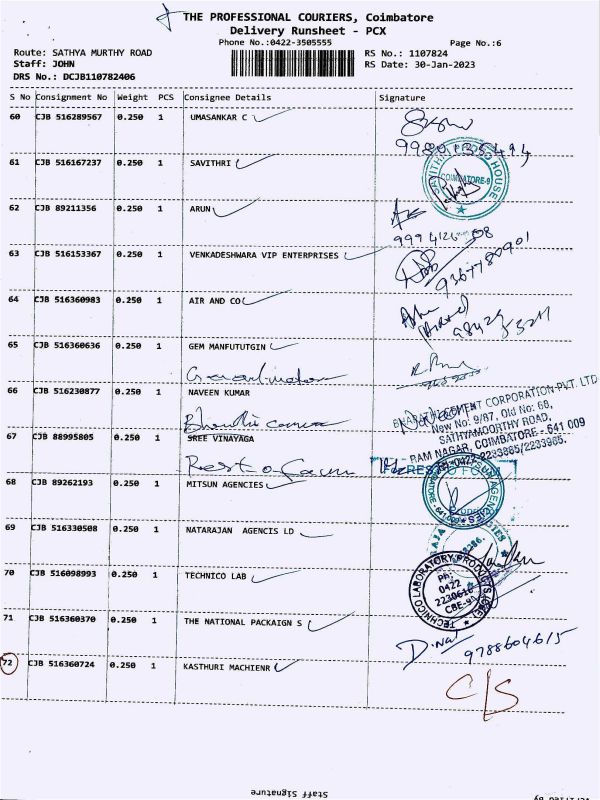 THE PROFESSIONAL COURIERS, Coimbatore
Delivery Runsheet - PCX
Phone No.:0422-3505555
Page No.:6
Route: SATHYA MURTHY ROAD
RS No.: 1107824
Staff: JOHN
RS Date: 30-Jan-2023
DRS No.: DCJB110782406
S No Consignment No Weight PCS Consignee Details Signature
60 CJB 516289567 0.250 1 UMASANKAR C
61 CJB 516167237 0.250 1 SAVITHRI
SAVITHRI PHOTO HOUSE
COIMBATORE-9
62 CJB 89211356 0.250 1 ARUN
63 CJB 516153367 0.250 1 VENKADESHWARA VIP ENTERPRISES
9367780901
64 CJB 516360983 0.250 1 AIR AND CO
65 CJB 516360636 0.250 1 GEM MANFUTUTGIN
66 CJB 516230877 0.250 1 NAVEEN KUMAR
CEMENT CORPORATION PVT. LTD
New No: 9/87, Old No: 68,
SATHYAMOORTHY ROAD,
RAM NAGAR, COIMBATORE - 641 009
67 CJB 88995805 0.250 1 SREE VINAYAGA
68 CJB 89262193 0.250 1 MITSUN AGENCIES
69 CJB 516330508 0.250 1 NATARAJAN AGENCIS LD
70 CJB 516098993 0.250 1 TECHNICO LAB
TECHNICO LABORATORY PRODUCTS
Ph:
0422
CBE-9
71 CJB 516360370 0.250 1 THE NATIONAL PACKAIGN S
D. Nat
9788604615
72 CJB 516360724 0.250 1 KASTHURI MACHIENR
C/S
Staff Signature